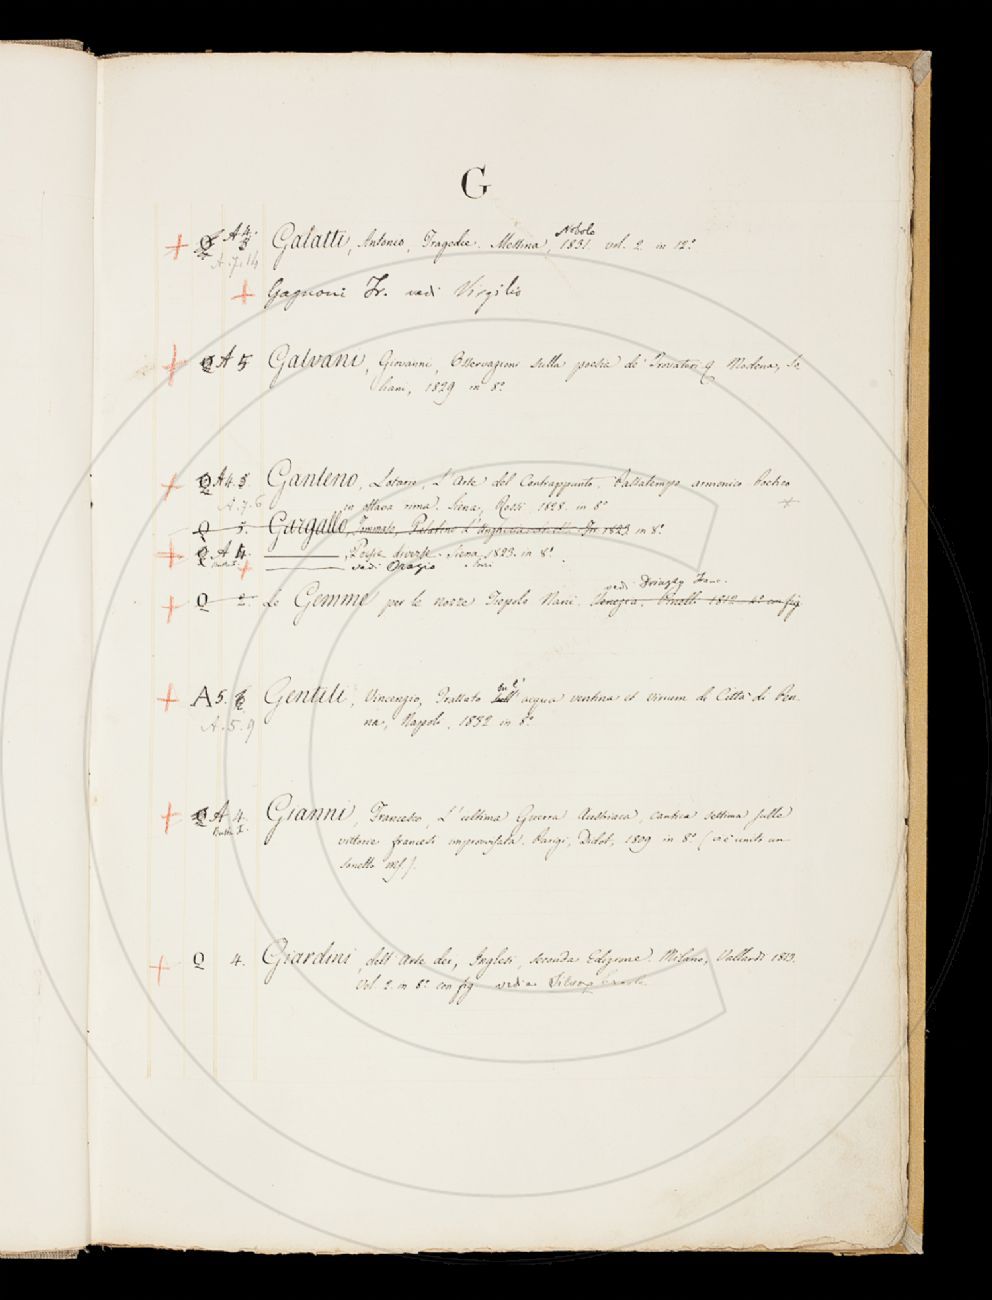 G
A 4.
Nobolo
Q 3 Galatti, Antonio, Tragedie. Messina, 1831. vol. 2 in 12.°
A.7.14
Gagnoni Fr. vedi Virgilio
Q A 5 Galvani, Giovanni, Osservazioni sulla poesia de' Trovatori Modena, So
liani, 1829 in 8.°
Q A 4. 5 Ganteno, Lotario, L'Arte del Contrappunto. Passatempo armonico-Poetico
A.7.6 in ottava rima. Siena, Rossi 1828. in 8.°
Q 5. Gargallo, Tommaso, in 8.°
Q A 4. Poesie diverse. Siena 1823. in 8.°
vedi Orazio
vedi
Q 2. Le Gemme per le nozze Tiepolo Nani. Venezia. 1812 4.° con fig
A 5. 6 Gentili, Vincenzio, Trattato sull' acqua ventina et virium di Città di Pen
A.5.9 na, Napoli, 1832 in 8.°
Q A 4. Gianni, Francesco, L'ultima Guerra Austriaca, cantica settima sulle
Busta I. vittorie francesi improvvisata. Parigi, Didot, 1809 in 8.° (vi è unito un
sonetto ms.).
Q 4. Giardini, dell'Arte dei, Inglesi, seconda Edizione. Milano, Vallardi 1813.
Vol 2. in 8.° con fig vedi a Silva